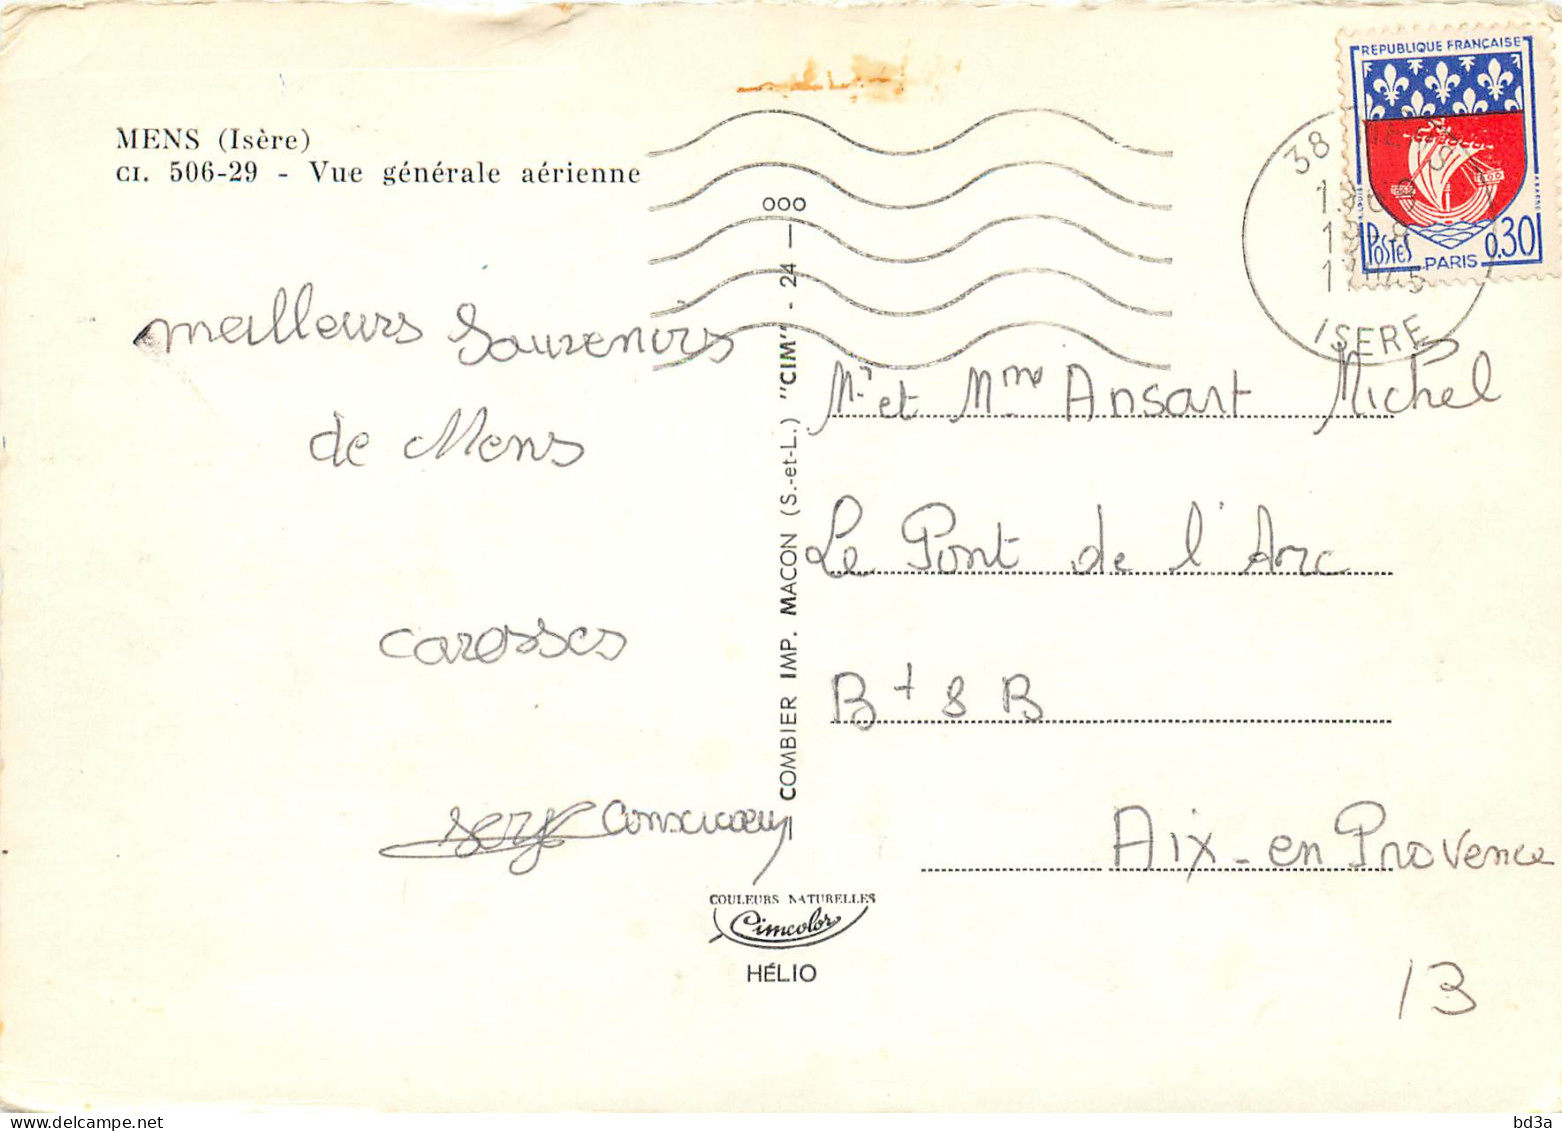 MENS (Isère)
CI. 506-29 - Vue générale aérienne
meilleurs Souvenirs
de Mens
carosses
serge
COMBIER IMP. MACON (S.-et-L.) "CIM" - 24 — 000
COULEURS NATURELLES
Cimcolor
HÉLIO
REPUBLIQUE FRANÇAISE
POSTES
0,30
PARIS
38
ISERE
Mr et Mme Ansart Michel
Le Pont de l'Arc
Bt 8 B
Aix-en Provence
13
bd3a